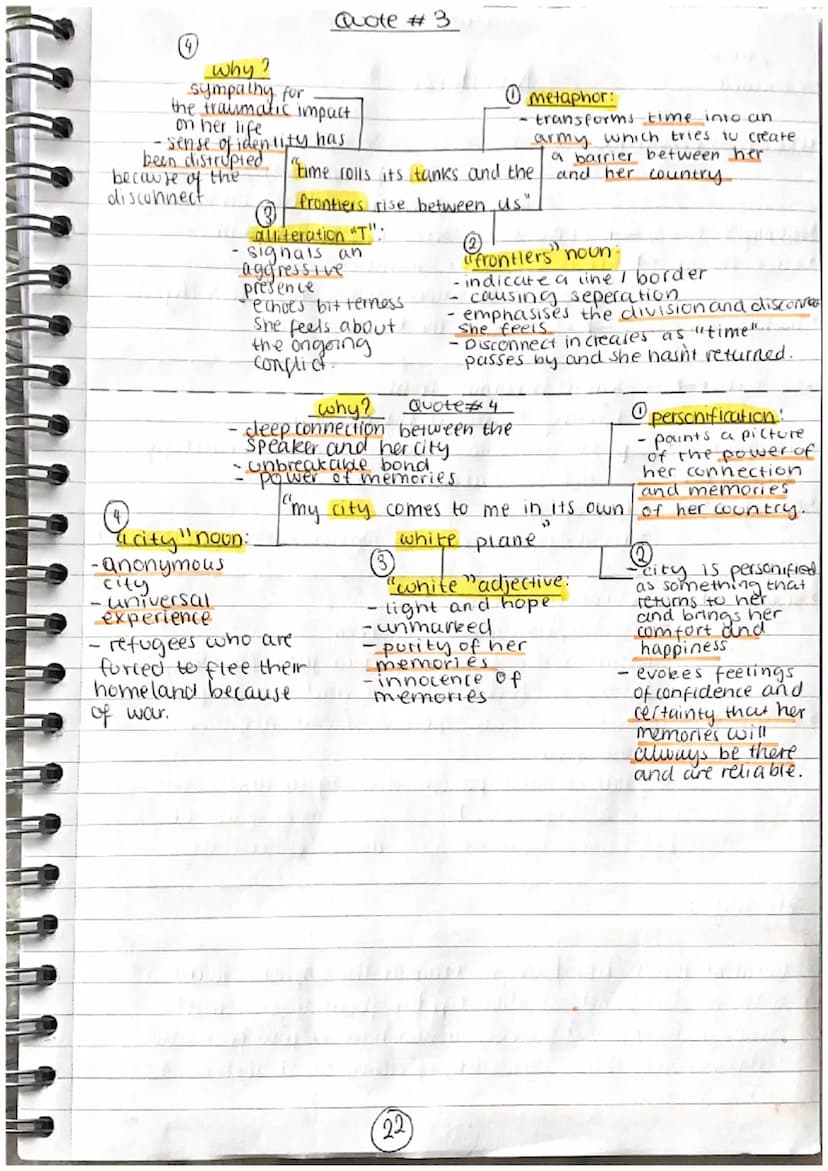 Quote # 3
④
why?
sympathy for
the traumatic impact
on her life
- sense of identity has
been distrupied
because of the
disconnect
① metaphor:
- transforms time into an
army which tries to create
a barrier between her
and her country
"time rolls its tanks and the
frontiers rise between us"
③
alliteration "T":
- signals an
aggressive
presence
- echoes bitterness
she feels about
the ongoing
conflict.
②
"frontiers" noun:
- indicate a line / border
- causing seperation
- emphasises the division and disconnect
she feels
- Disconnect increases as "time"
passes by and she hasn't returned.
why? Quote # 4
- deep connection between the
speaker and her city
- unbreakable bond
- power of memories
① personification:
- paints a picture
of the power of
her connection
and memories
of her country.
"my city comes to me in its own
white plane"
④
"city" noun:
- anonymous
city
- universal
experience
- refugees who are
forced to flee their
homeland because
of war.
③
"white" adjective:
- light and hope
- unmarked
- purity of her
memories
- innocence of
memories
②
- city is personified
as something that
returns to her
and brings her
comfort and
happiness
- evokes feelings
of confidence and
certainty that her
memories will
always be there
and are reliable.
22